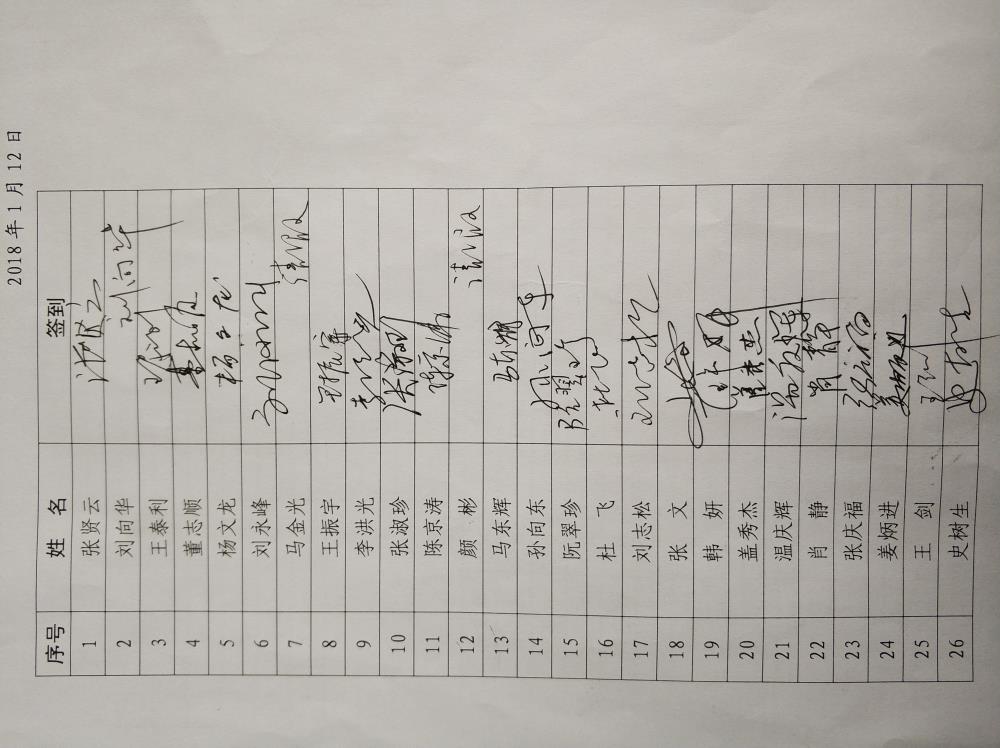 2018 年 1 月 12 日
序号 姓 名 签到
1 张贤云
2 刘向华 刘向华
3 王泰利
4 董志顺 董志顺
5 杨文龙 杨文龙
6 刘永峰
7 马金光 请假
8 王振宇 王振宇
9 李洪光 李洪光
10 张淑珍 张淑珍
11 陈京涛 陈京涛
12 颜 彬 请假
13 马东辉 马东辉
14 孙向东 孙向东
15 阮翠珍 阮翠珍
16 杜 飞 杜飞
17 刘志松 刘志松
18 张 文
19 韩 妍
20 盖秀杰 盖秀杰
21 温庆辉 温庆辉
22 肖 静 肖静
23 张庆福 张庆福
24 姜炳进
25 王 剑 王剑
26 史树生 史树生